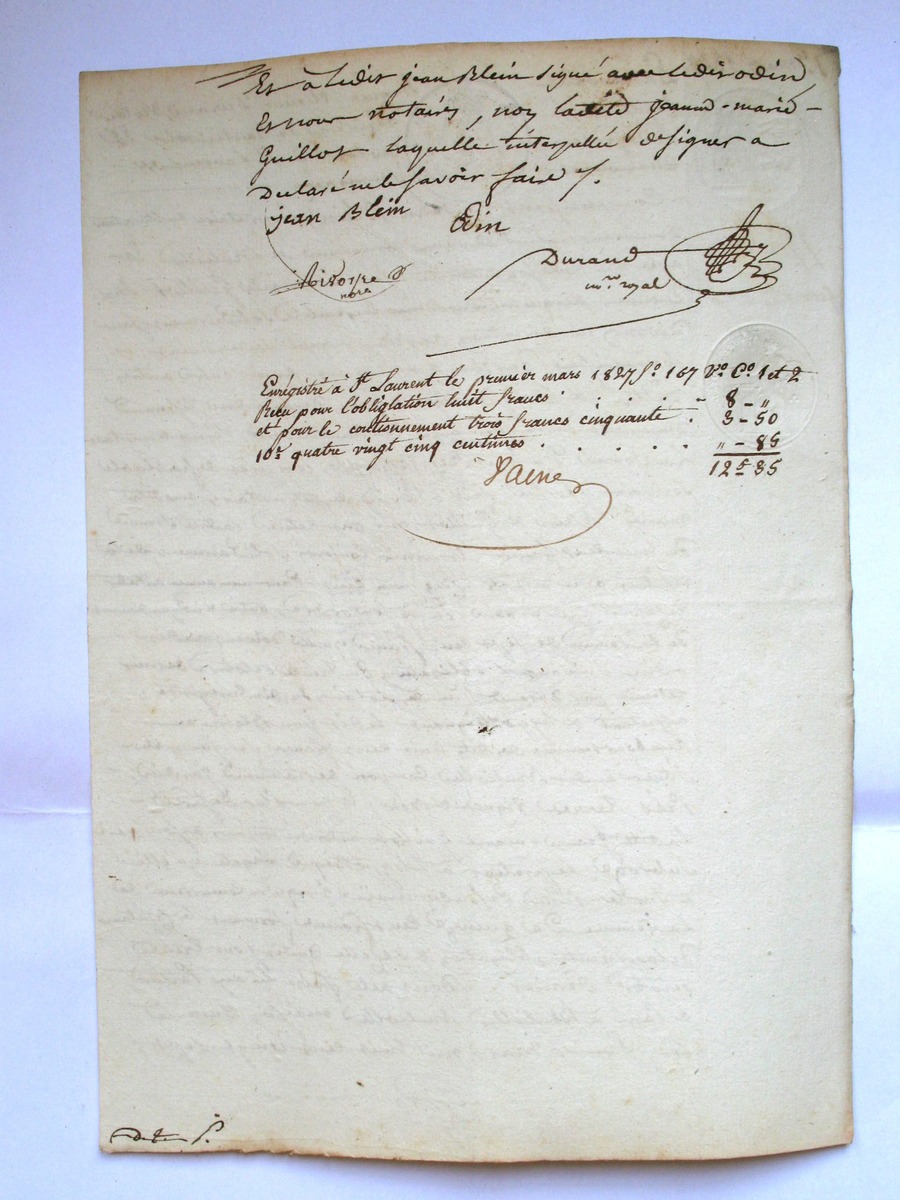 Et a ledit jean Blein signé avec ledit odin
et nous notaires, non ladite jeanne-marie
Guillot laquelle interpellée de signer a
Declaré ne le savoir faire /.
jean Blein
Odin
Durand
nre. royal
nore
Enrégistré à St Laurent le premier mars 1827 fo. 167 Vo. Co. 1 et 2
Reçu pour l'obligation huit francs . . . . 8 - "
et pour le cautionnement trois francs cinquante . 3 - 50
10e. quatre vingt cinq centimes . . . . . " - 85
12f 35